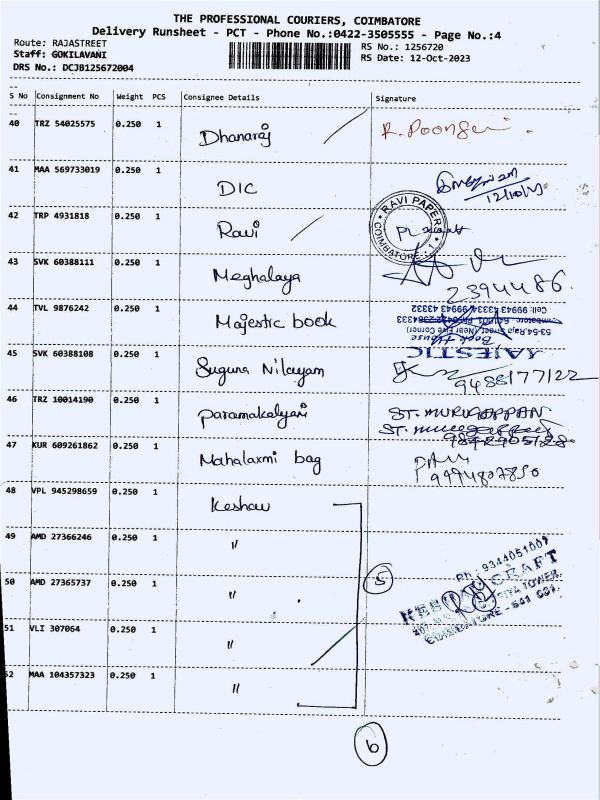 THE PROFESSIONAL COURIERS, COIMBATORE
Delivery Runsheet - PCT - Phone No.:0422-3505555 - Page No.:4
Route: RAJASTREET
RS No.: 1256720
Staff: GOKILAVANI
RS Date: 12-Oct-2023
DRS No.: DCJB125672004
S No Consignment No Weight PCS Consignee Details Signature
40 TRZ 54025575 0.250 1 Dhanaraj R. Poongu
41 MAA 569733019 0.250 1 DIC 12/10/23
42 TRP 4931818 0.250 1 Ravi RAVI PAPERS COIMBATORE - 1
43 SVK 60388111 0.250 1 Meghalaya 2394486
44 TVL 9876242 0.250 1 Majestic book MAJESTIC
Book House
53-54, Raja Street, (Near) Five Corner)
Cell: 99943 43334, 99943 43332
45 SVK 60388108 0.250 1 Suguna Nilayam 9488177122
46 TRZ 10014190 0.250 1 Paramakalyani ST. MURUGAPPAN
9842905128
47 KUR 609261862 0.250 1 Mahalaxmi bag 9994807850
48 VPL 945298659 0.250 1 Keshav
49 AMD 27366246 0.250 1 "
Ph : 9344051009
50 AMD 27365737 0.250 1 " 5
CRAFT
TOWER,
COIMBATORE - 641 001.
51 VLI 307064 0.250 1 "
52 MAA 104357323 0.250 1 "
6